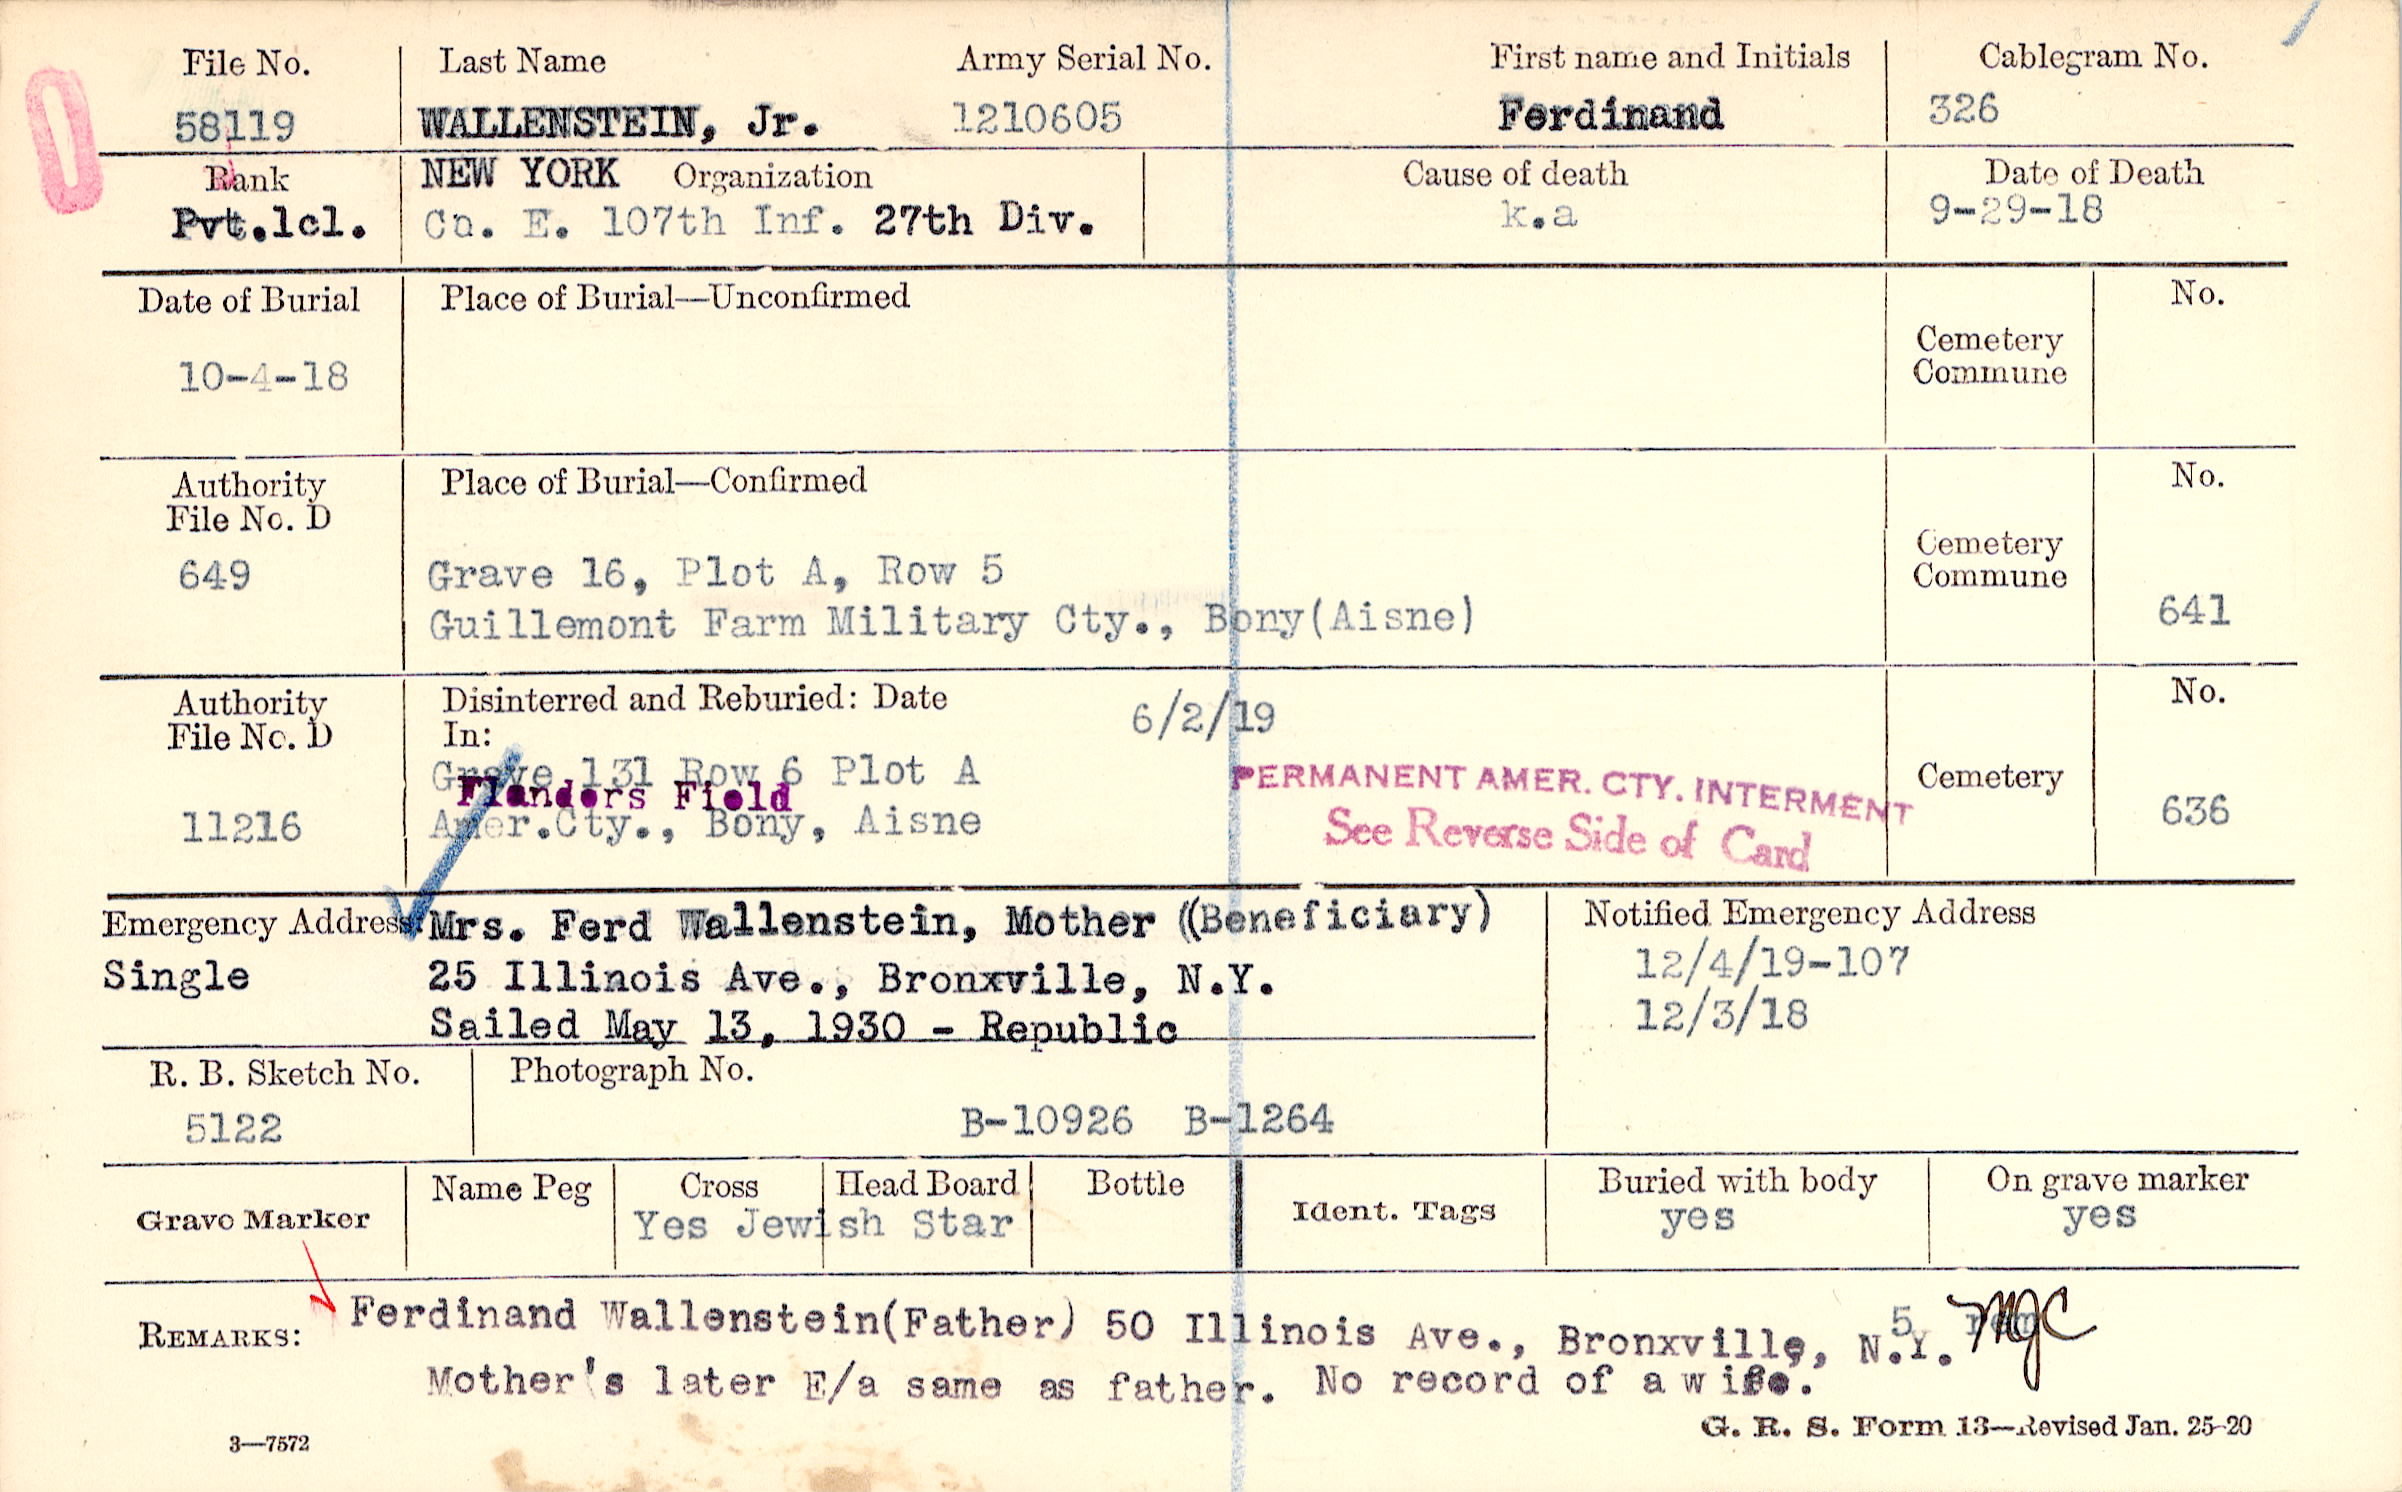 File No. Last Name Army Serial No. First name and Initials Cablegram No.
58119 WALLENSTEIN, Jr. 1210605 Ferdinand 326
Rank NEW YORK Organization Cause of death Date of Death
Pvt.1cl. Co. E. 107th Inf. 27th Div. k.a 9-29-18
Date of Burial Place of Burial—Unconfirmed No.
10-4-18 Cemetery
Commune
Authority Place of Burial—Confirmed No.
File No. D
649 Grave 16, Plot A, Row 5 Cemetery
Commune
Guillemont Farm Military Cty., Bony(Aisne) 641
Authority Disinterred and Reburied: Date 6/2/19 No.
File No. D In:
Grave 131 Row 6 Plot A PERMANENT AMER. CTY. INTERMENT Cemetery
Flanders Field
11216 Amer.Cty., Bony, Aisne See Reverse Side of Card 636
Emergency Address: Mrs. Ferd Wallenstein, Mother ((Beneficiary) Notified Emergency Address
Single 25 Illinois Ave., Bronxville, N.Y. 12/4/19-107
Sailed May 13, 1930 - Republic 12/3/18
R. B. Sketch No. Photograph No.
5122 B-10926 B-1264
Grave Marker Name Peg Cross Head Board Bottle Ident. Tags Buried with body On grave marker
Yes Jewish Star yes yes
REMARKS: Ferdinand Wallenstein(Father) 50 Illinois Ave., Bronxville, N.Y. 5 MJC
Mother's later E/a same as father. No record of a wife.
3—7572 G. R. S. Form 13—Revised Jan. 25-20